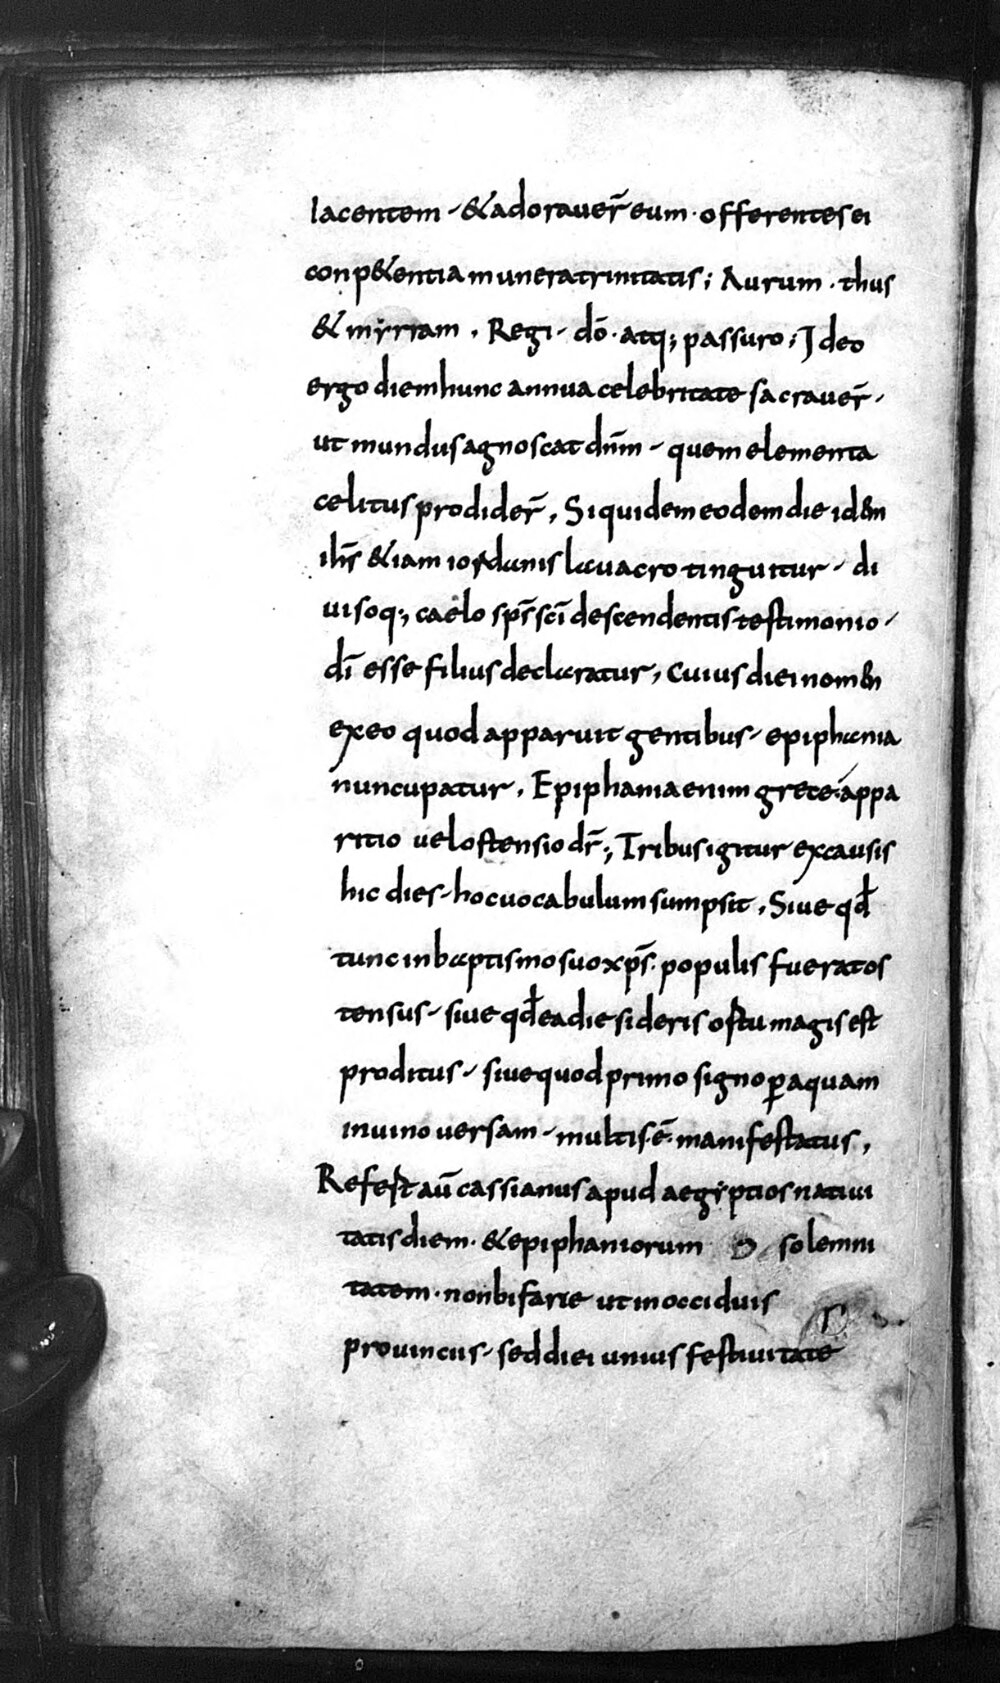 Iacentem - & adorauer̄ eum · offerentes ei
conp&entia munera trinitatis ; Aurum · thus
& myrram . Regi - dō · atq; passuro ; Ideo
ergo diem hunc annua celebritate sacrauer̄ -
ut mundus agnoscat dn̄m - quem elementa
celitus prodider̄ , Siquidem eodem die idem
ih̄s &iam iordanis lauacro tinguitur - di
uisoq; caelo sp̄s sc̄i descendentis testimonio -
dī esse filius declaratur , Cuius diei nomen
ex eo quod apparuit gentibus - epiphania
nuncupatur . Epiphania enim grece · appa
ritio uel ostensio dr̄ ; Tribus igitur ex causis
hic dies - hoc uocabulum sumpsit , Siue qd̄
tunc in baptismo suo xp̄s · populis fuerat os
tensus - siue qd̄ ea die sideris ostu magis est
proditus - siue quod primo signo ꝑ aquam
in uino uersam - multis · ē · manifestatus ,
Refert aū cassianus apud aegyptios natiui
tatis diem · & epiphaniorum solemni
tatem · non bifarie ut in occiduis
prouinciis - sed diei unius festiuitate